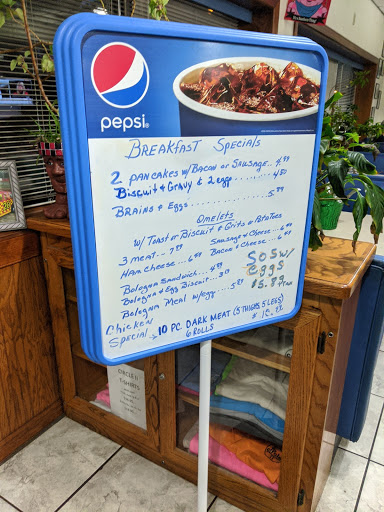 pepsi
BREAKFAST SPECIALS
2 PANCAKES W/BACON OR SAUSAGE..4.99
BISCUIT & GRAVY & 2 eggs..........4.50
BRAINS & EGGS...............5.99
OMELETS
W/ TOAST OR BISCUIT & GRITS OR POTATOES
3 MEAT..7.99 SAUSAGE & CHEESE..6.99
HAM CHEESE..6.99 BACON & CHEESE..6.99
BOLOGNA SANDWICH...4.99
BOLOGNA & EGG BISCUIT..
BOLOGNA MEAL W/egg...5.89
SOS W/
EGGS
$5.89
CHICKEN
SPECIAL..10 PC. DARK MEAT (5 THIGHS 5 LEGS)
6 ROLLS
CIRCLE
T-SHIRTS